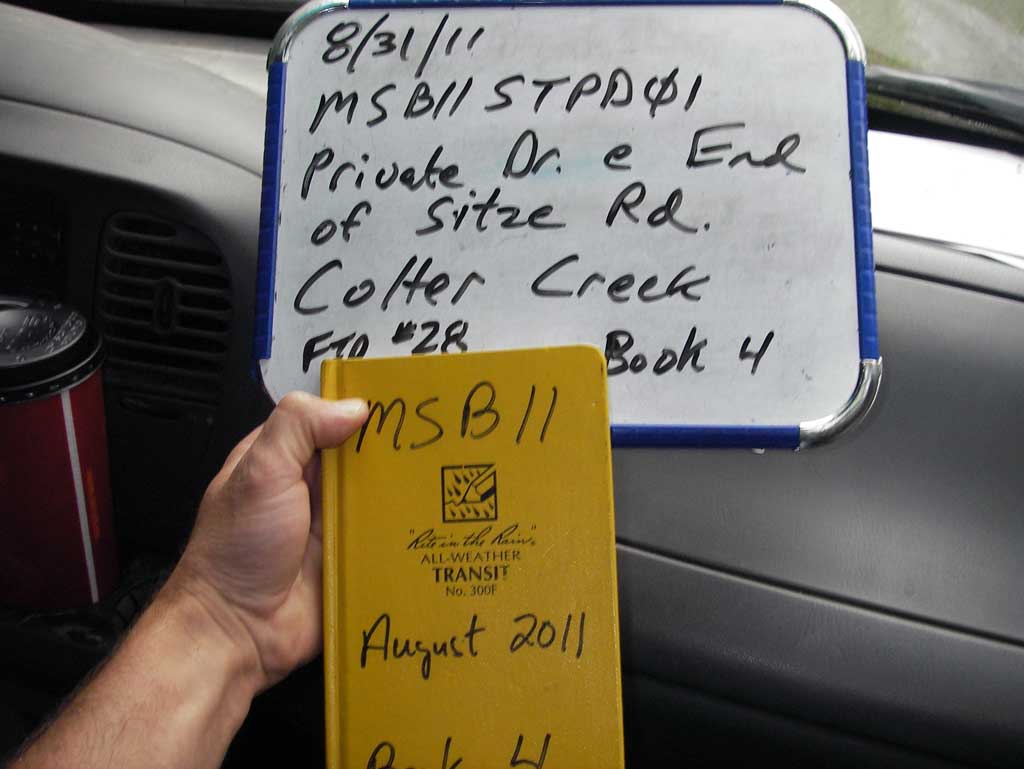 8/31/11
MSB11STPD01
Private Dr. e End
of Sitze Rd.
Cotter Creek
FTO #28 Book 4
MSB11
"Rite in the Rain"
ALL-WEATHER
TRANSIT
No. 300F
August 2011
Book 4